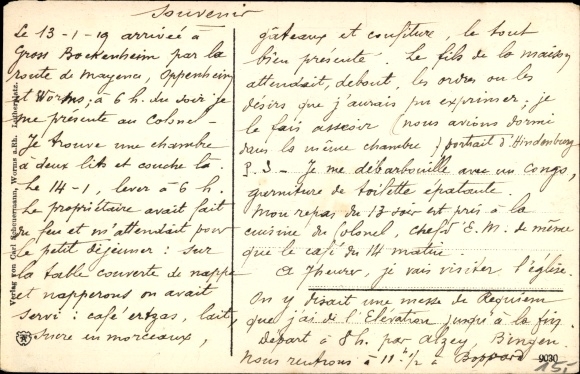 Souvenir
Le 13-1-19 arrivée à
Gross Bockenheim par la
route de Mayence, Oppenheim
et Worms; à 6 h. du soir je
me présente au Colonel -
Je trouve une chambre
à deux lits et couche là.
Le 14-1, lever à 6 h.
Le propriétaire avait fait
du feu et m'attendait pour
le petit déjeuner : sur
la table couverte de nappe
et napperons on avait
servi : café ertzas, lait,
sucre en morceaux,
gâteaux et confiture, le tout
bien présenté. Le fils de la maison
attendait, debout, les ordres ou les
désirs que j'aurais pu exprimer; je
le fais asseoir (nous avions dormi
dans la même chambre) portrait d'Hindenburg
P.S. - Je me débarbouille avec un Congo,
garniture de toilette épatante.
Mon repas du 13 soir est pris à la
cuisine du Colonel, chef d'E.M. de même
que le café du 14 matin.
A 7 heures, je vais visiter l'église.
On y disait une messe de Requiem
que j'ai de l'Elévation jusqu'à la fin.
Départ à 8 h. par Alzey, Bingen.
Nous rentrons à 11 h 1/2 à Boppard
Verlag von Carl Schnuermann, Worms a.Rh.
9030
15,-